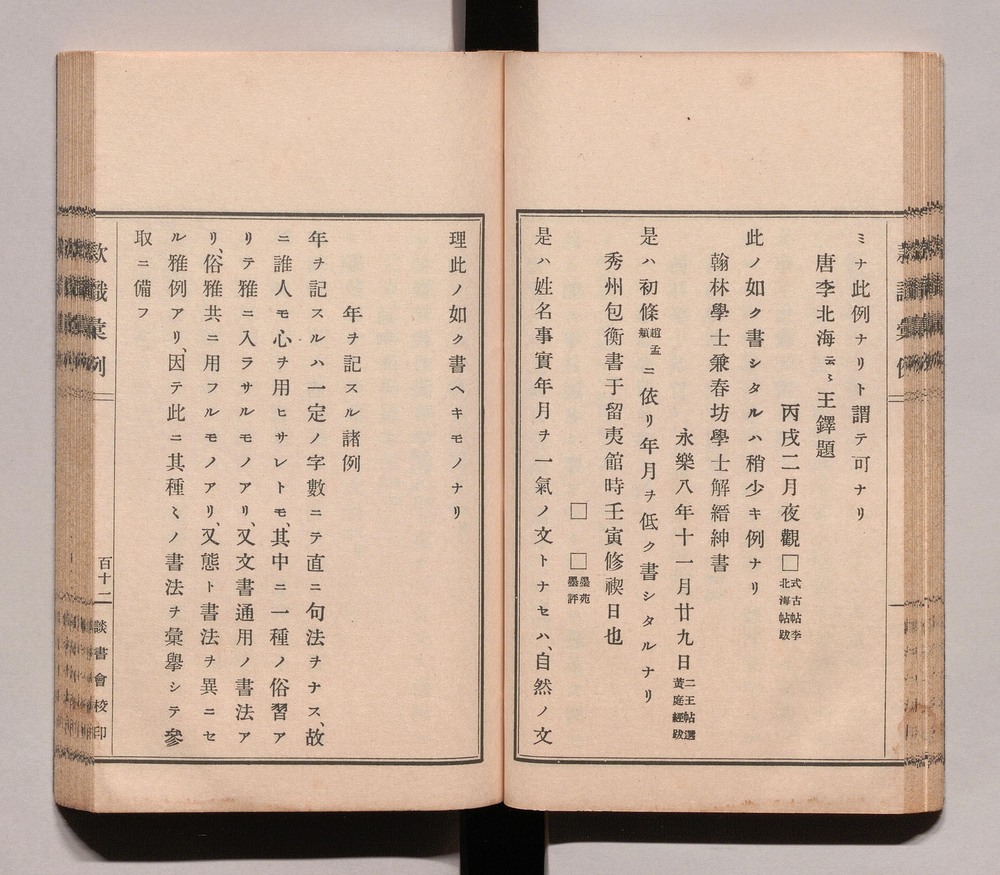 ミナ此例ナリト謂テ可ナリ
唐李北海云々王鐸題
丙戌二月夜觀□式古帖李北海帖跋
此ノ如ク書シタルハ稍少キ例ナリ
翰林學士兼春坊學士解縉紳書
永樂八年十一月廿九日二王帖選黃庭經跋
是ハ初條趙孟頫ニ依リ年月ヲ低ク書シタルナリ
秀州包衡書于留夷館時壬寅修禊日也
□□墨苑墨評
是ハ姓名事實年月ヲ一氣ノ文トナセハ、自然ノ文
理此ノ如ク書ヘキモノナリ
年ヲ記スル諸例
年ヲ記スルハ一定ノ字數ニテ直ニ句法ヲナス、故
ニ誰人モ心ヲ用ヒサレトモ、其中ニ一種ノ俗習ア
リテ雅ニ入ラサルモノアリ、又文書通用ノ書法ア
リ、俗雅共ニ用フルモノアリ、又態ト書法ヲ異ニセ
ル雅例アリ、因テ此ニ其種々ノ書法ヲ彙擧シテ參
取ニ備フ
款識彙例
百十二
談書會校印